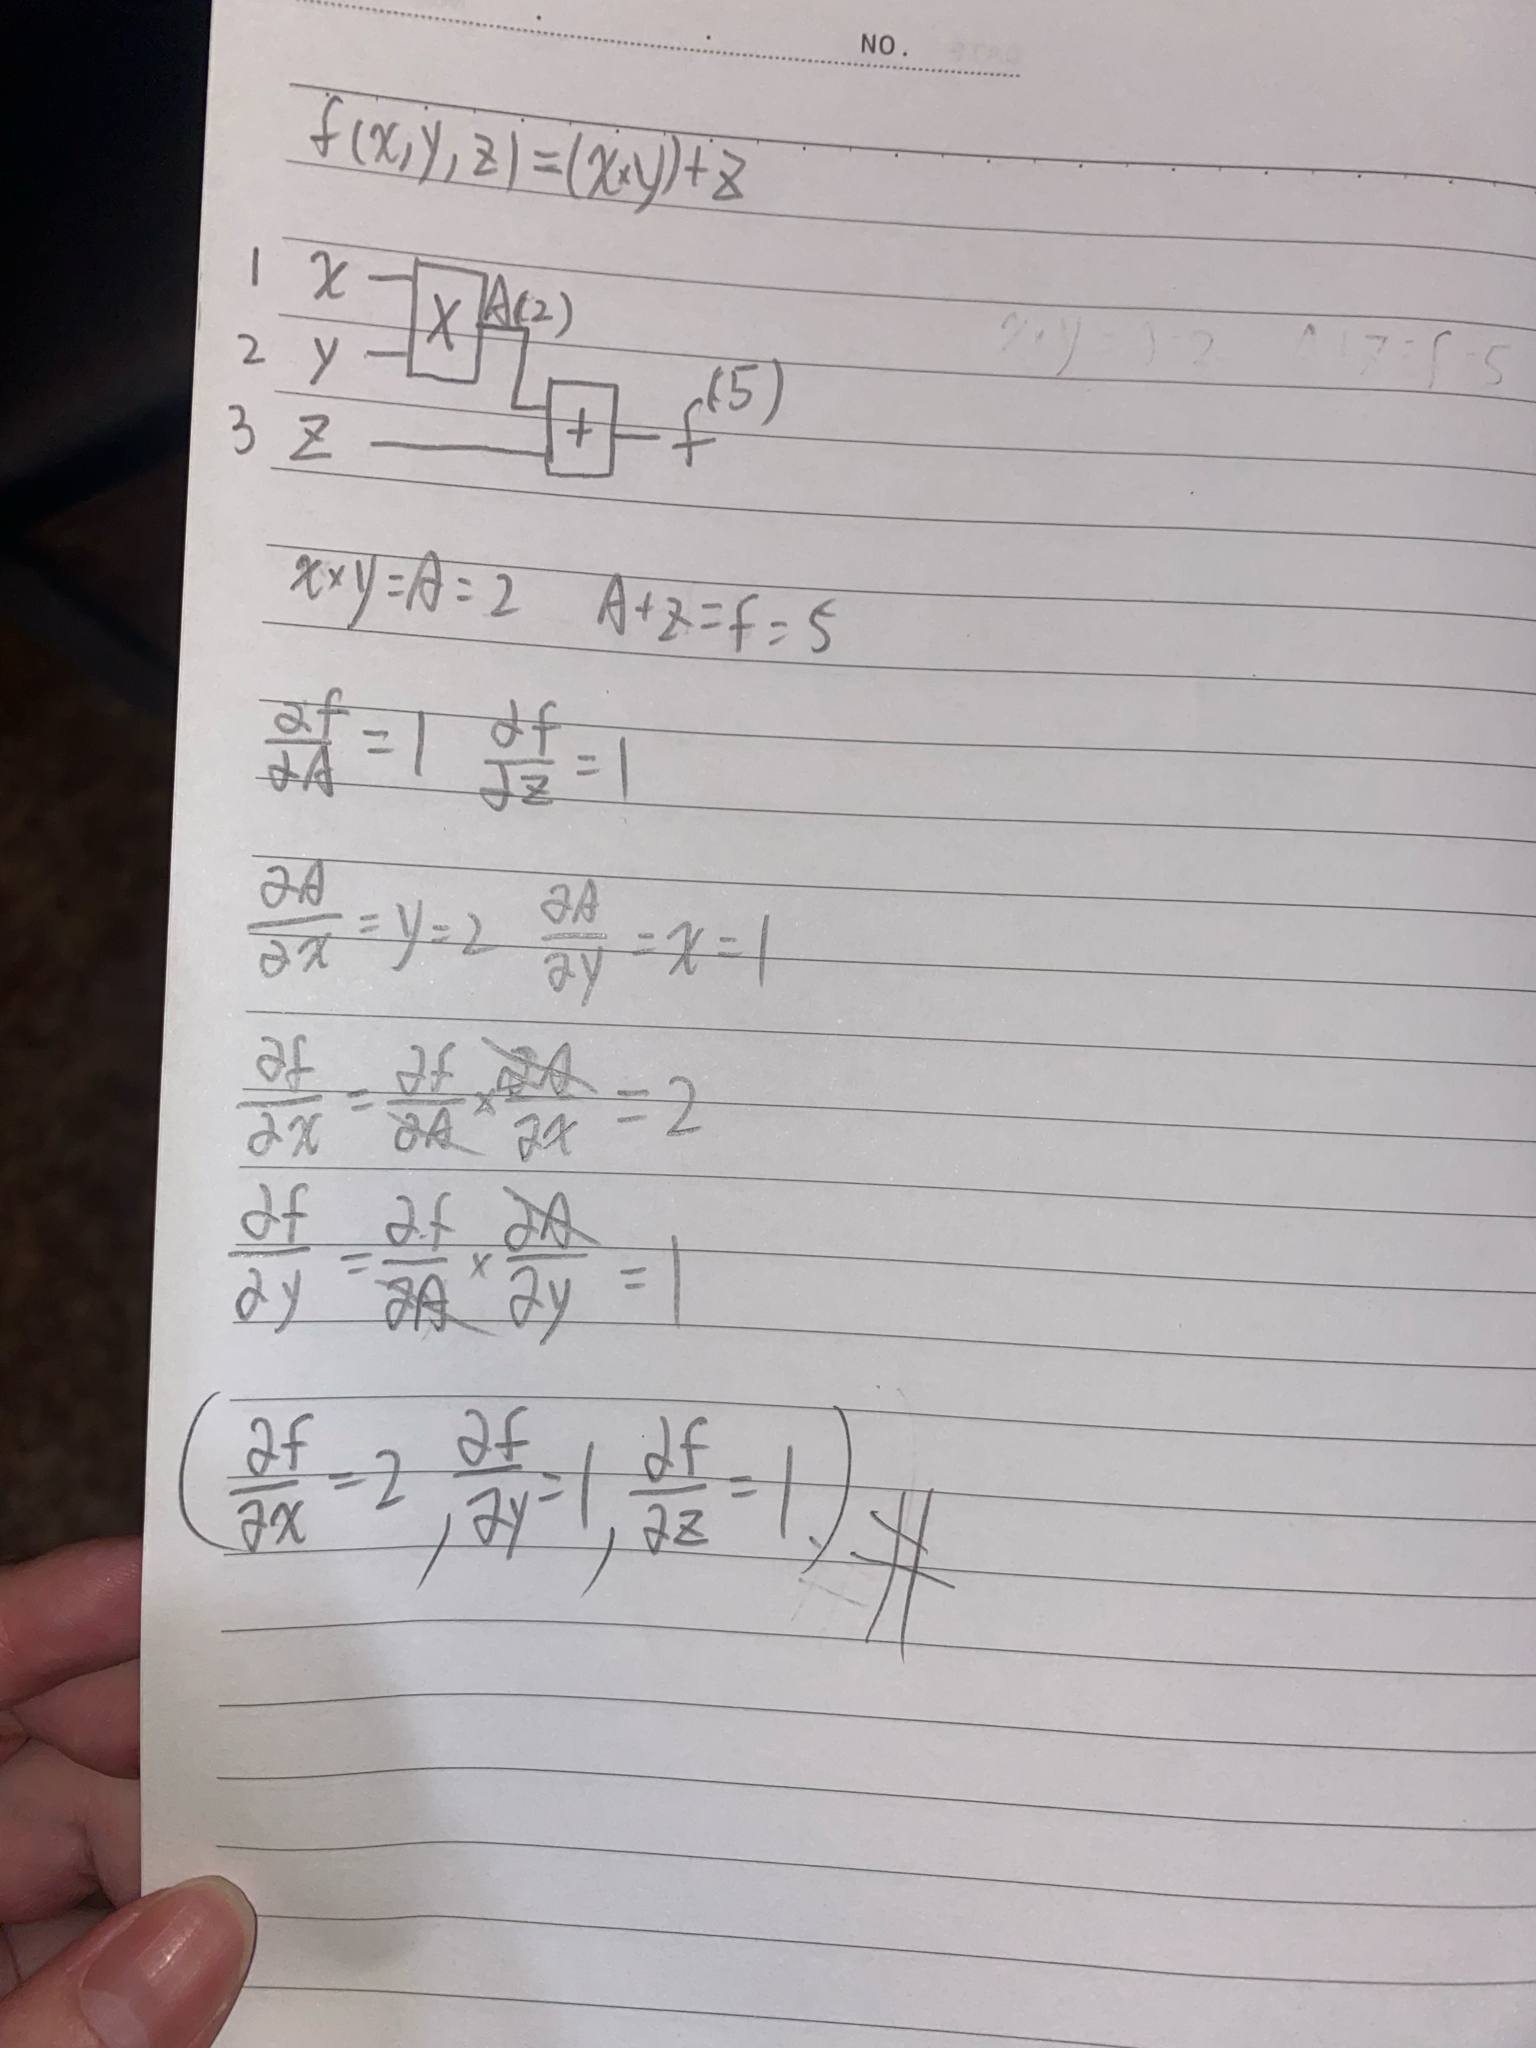 NO.
f(x,y,z)=(x×y)+z
1 x × A(2)
2 y
3 z + f(5)
x×y=A=2 A+z=f=5
∂f/∂A=1 ∂f/∂z=1
∂A/∂x=y=2 ∂A/∂y=x=1
∂f/∂x=∂f/∂A×∂A/∂x=2
∂f/∂y=∂f/∂A×∂A/∂y=1
(∂f/∂x=2, ∂f/∂y=1, ∂f/∂z=1)